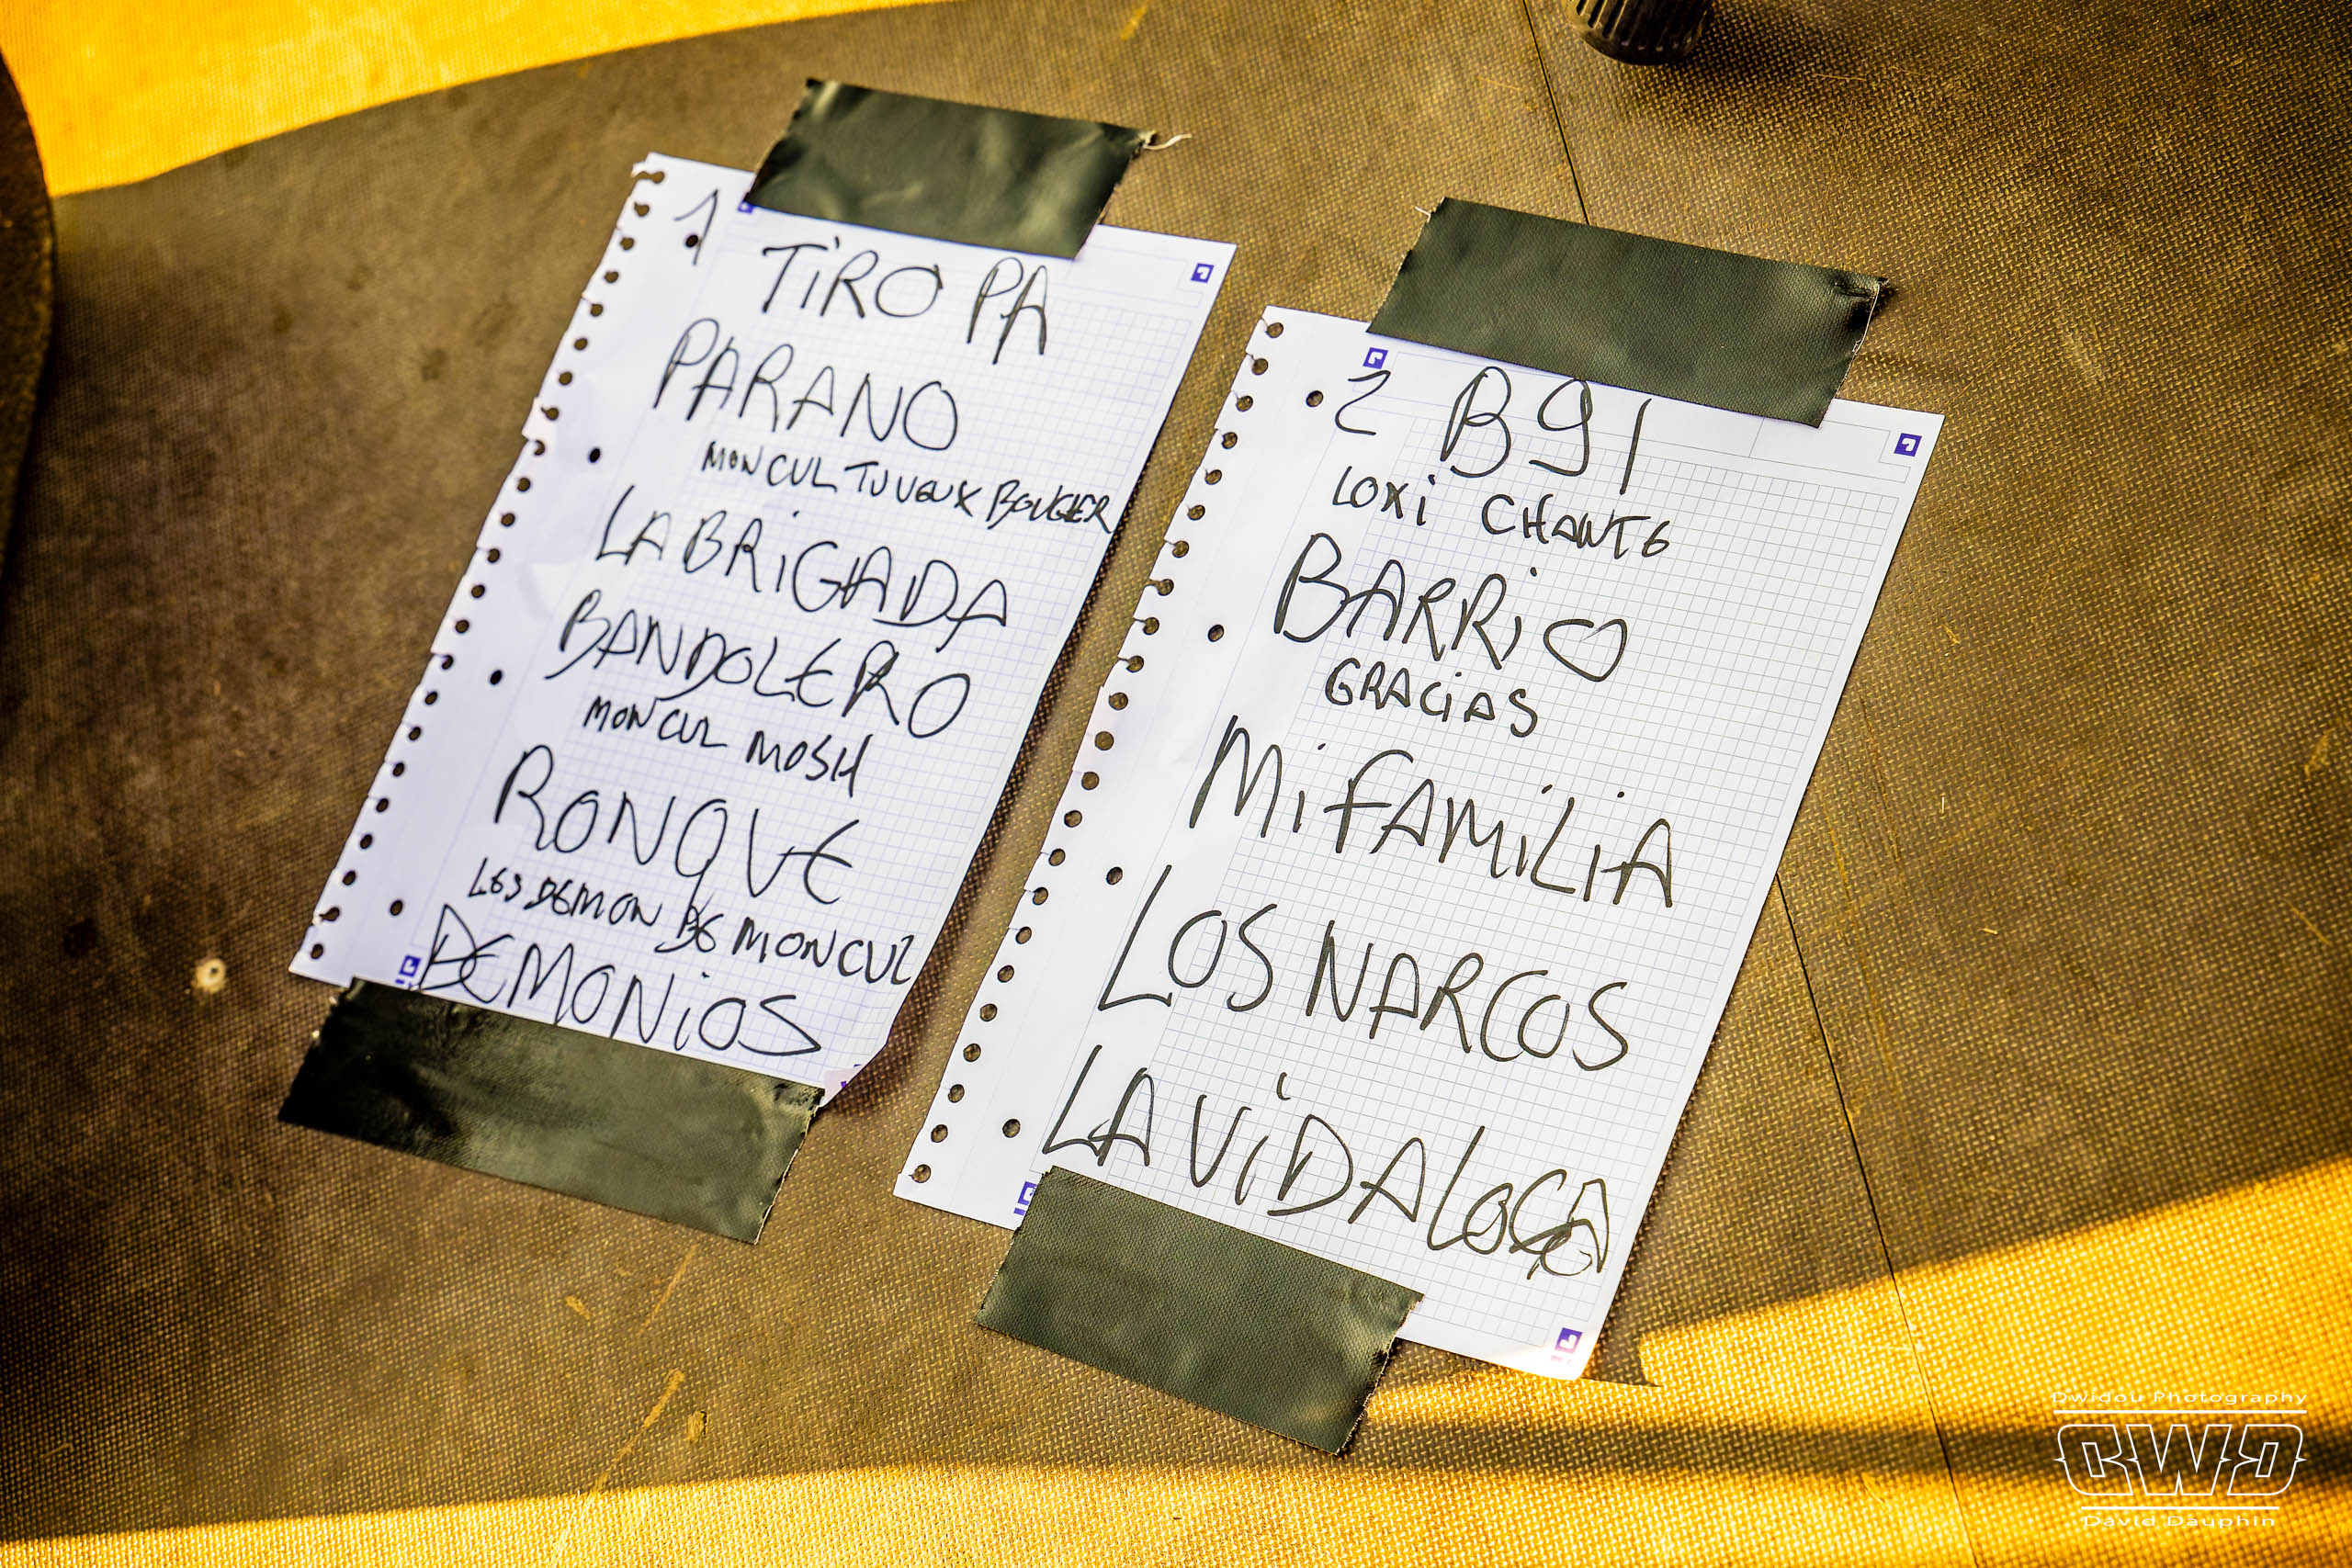 1
TiRO PA
PARANO
MON CUL TU VEUX BOUGER
LA BRiGADA
BANDOLERO
MON CUL MOSH
RONQUE
LES DEMON DE MON CUL
DEMONiOS
2 B91
LOXi CHANTE
BARRiO
GRACiAS
Mi FAMiLiA
LOS NARCOS
LA ViDA LOCA
Dwidou Photography
DWD
David Dauphin